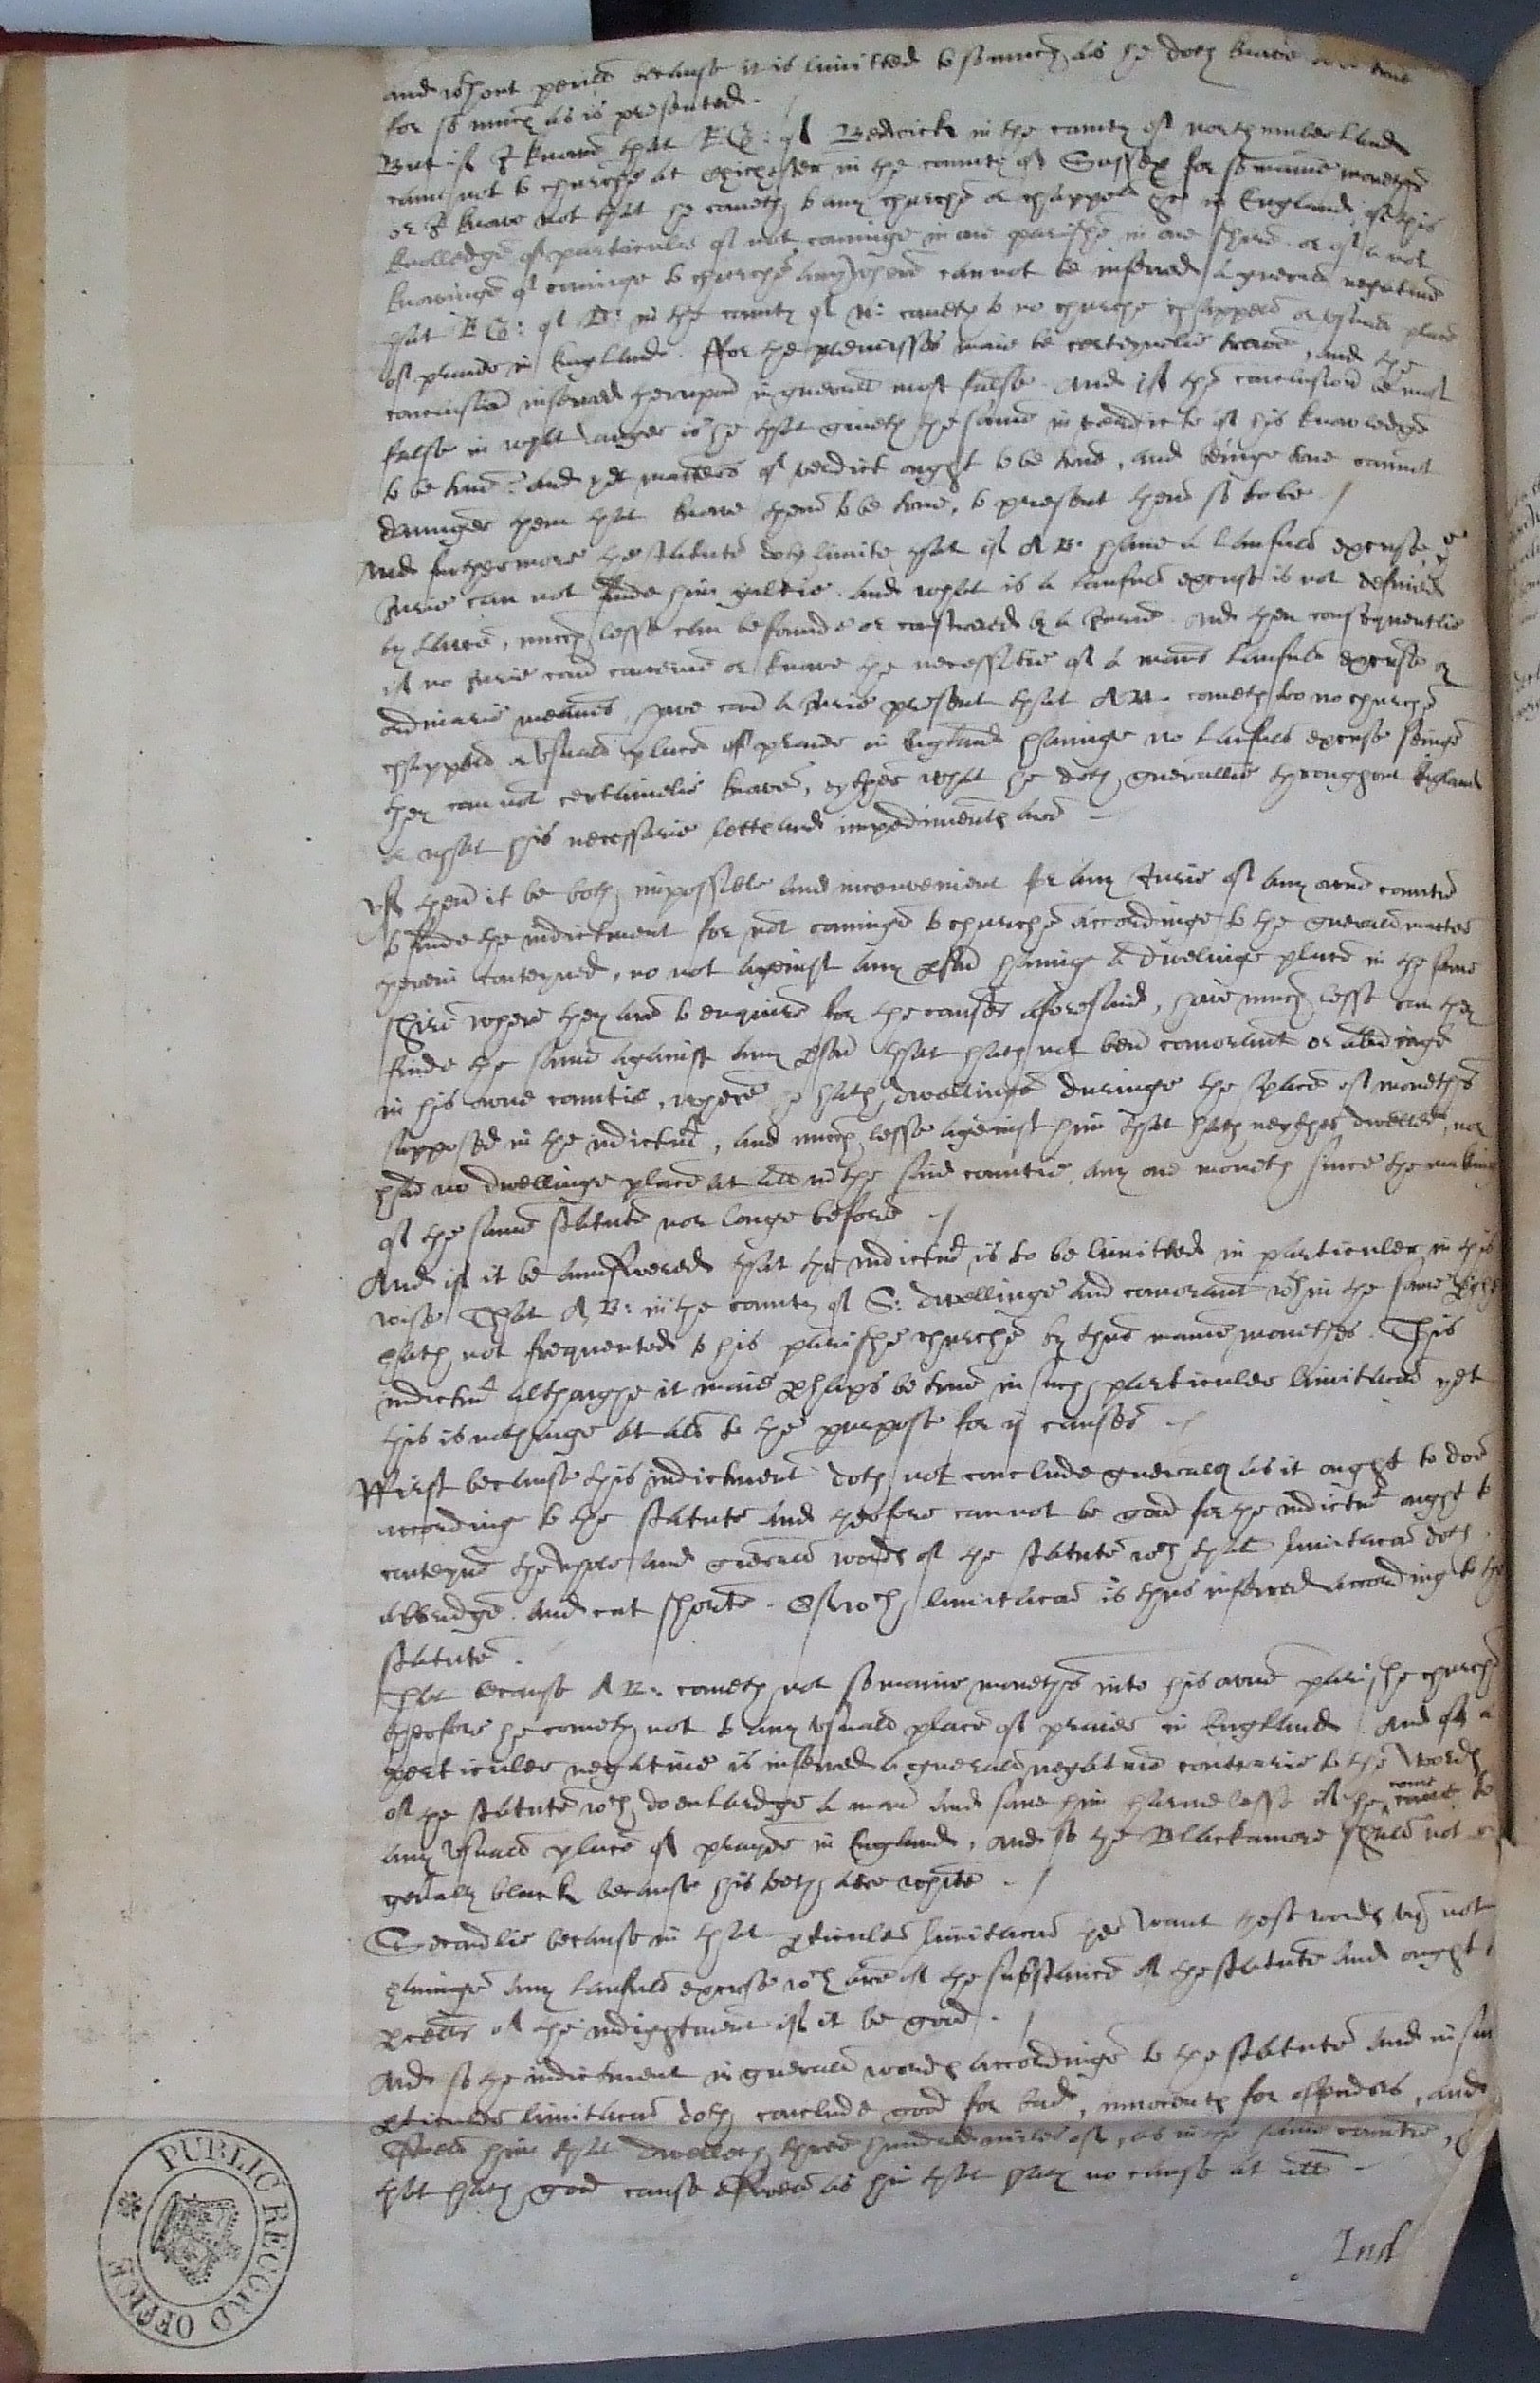 and wthout perill because it is limitted to so much as he doth knowe true
for so much as is presented.
But if I knowe that R G: of Bedwick in the county of northumberland
came not to churche at chichester in the county of Sussex for so manie monethes
or I knowe not that he cometh to any churche or chappell in England, of this
knolledge of particuler of not cominge in one parishe in one shire or of a not
knowinge of cominge to churche any where cannot be inferred a generall negative
that R G: of B: in the county of N: cometh to no churche chappell or usuall place
of praier in England. ffor the premisses maie be certeynelie knowne, and the
conclusion inferred therupon in generall most false. And if the conclusion be most
false in what daunger is he that giveth the same in verdicte of his knowledge
to be true? And yet matters of verdict ought to be true, and beinge true cannot
daunger them that knowe them to be true, to present them so to be /
And furthermore the statute doth limite that if A B. have a lawfull excuse the
Jurie can not finde him giltie. And what is a lawfull excuse is not defined
by lawe, much lesse can be founde or construed by a Jurie. And then consequentlie
if no Jurie can conceive or knowe the necessitie of a mans lawfull excuse by
ordinarie meanes, howe can a Jurie present that A B. cometh to no churche
chappell or usuall place of praier in England havinge no lawfull excuse seinge
they can not certainelie knowe, eyther what he doth generallie throughout England
or what his necessarie lettes and impedimentes are
If then it be both impossible and inconvenient for any Jurie of any one countie
to finde the indictment for not cominge to churche accordinge to the generall matter
therein conteyned, no not against any pson havinge a dwelinge place in the same
shire where they are to enquire for the causes aforesaid, howe much lesse can they
finde the same against any pson that hath not ben comorant or abidinge
in his owne countie, where he hath dwellinge duringe the space of monethes
supposed in the indictmt, and much lesse against him that hath neyther dwelled, nor
had no dwellinge place at all in the said countie any one moneth since the making
of the same statute nor longe before /
And if it be aunswered that the indictmt is to be limitted in particuler in this
wise That A B: in the county of S: dwellinge and comorant wthin the same
hath not frequented to his parishe churche by thus manie monethes. This
indictmt althoughe it maie phaps be true in such particuler limitacon yet
this is nothinge at all to the purpose for ij causes
ffirst because this indictment doth not conclude generally as it ought to doe
according to the statute and therfore cannot be good for the indictmt ought to
conteyne the whole and generall words of the statute wch that limitacon doth
abbridge and cut shorte. Of wch limitacon is thus inferred according to the
statute.
That because A B. cometh not so manie monethes into his owne parishe churche
therfore he cometh not to any usuall place of praier in England. And of a
perticuler negative is inferred a generall negative contrarie to the words
of the statute wch do enlardge a man and save him harmelesse if he come to
any usuall place of prayer in England, and so the Blackamore should not
generally black because his teeth are white. /
Secondlie because in that pticuler limitacon ther want these words viz not
havinge any lawfull excuse wch are of the substance of the statute and ought
of the indightment if it be good. /
And so the indictment in generall words accordinge to the statute and in
pticuler limitacon doth conclude good for bad, innocents for offendors, and
aswell him that dwelleth three hundred miles of, as in the same countie,
that hath good cause aswell as him that hath no cause at all
Ind
PUBLIC RECORD OFFICE